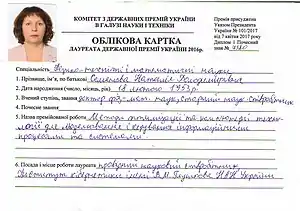 КОМІТЕТ З ДЕРЖАВНИХ ПРЕМІЙ УКРАЇНИ
В ГАЛУЗІ НАУКИ І ТЕХНІКИ
Премія присуджена
Указом Президента
України № 101/2017
від 7 квітня 2017 року
Диплом і Почесний
знак №
ОБЛІКОВА КАРТКА
ЛАУРЕАТА ДЕРЖАВНОЇ ПРЕМІЇ УКРАЇНИ 2016р.
Спеціальність фізико-технічні і математичні науки
1. Прізвище, ім'я, по батькові Семенова Наталія Володимирівна
2. Дата народження (число, місяць, рік) 18 лютого 1953р
3. Вчений ступінь, звання доктор фіз.-мат. наук, старший наук. співробітник
4. Почесне звання
5. Назва премійованої роботи Методи оптимізації та
для моделювання і керування інформаційними
процесами та системами
6. Посада і місце роботи лауреата провідний науковий співробітник
Інституту кібернетики імені В.М. Глушкова НАН України